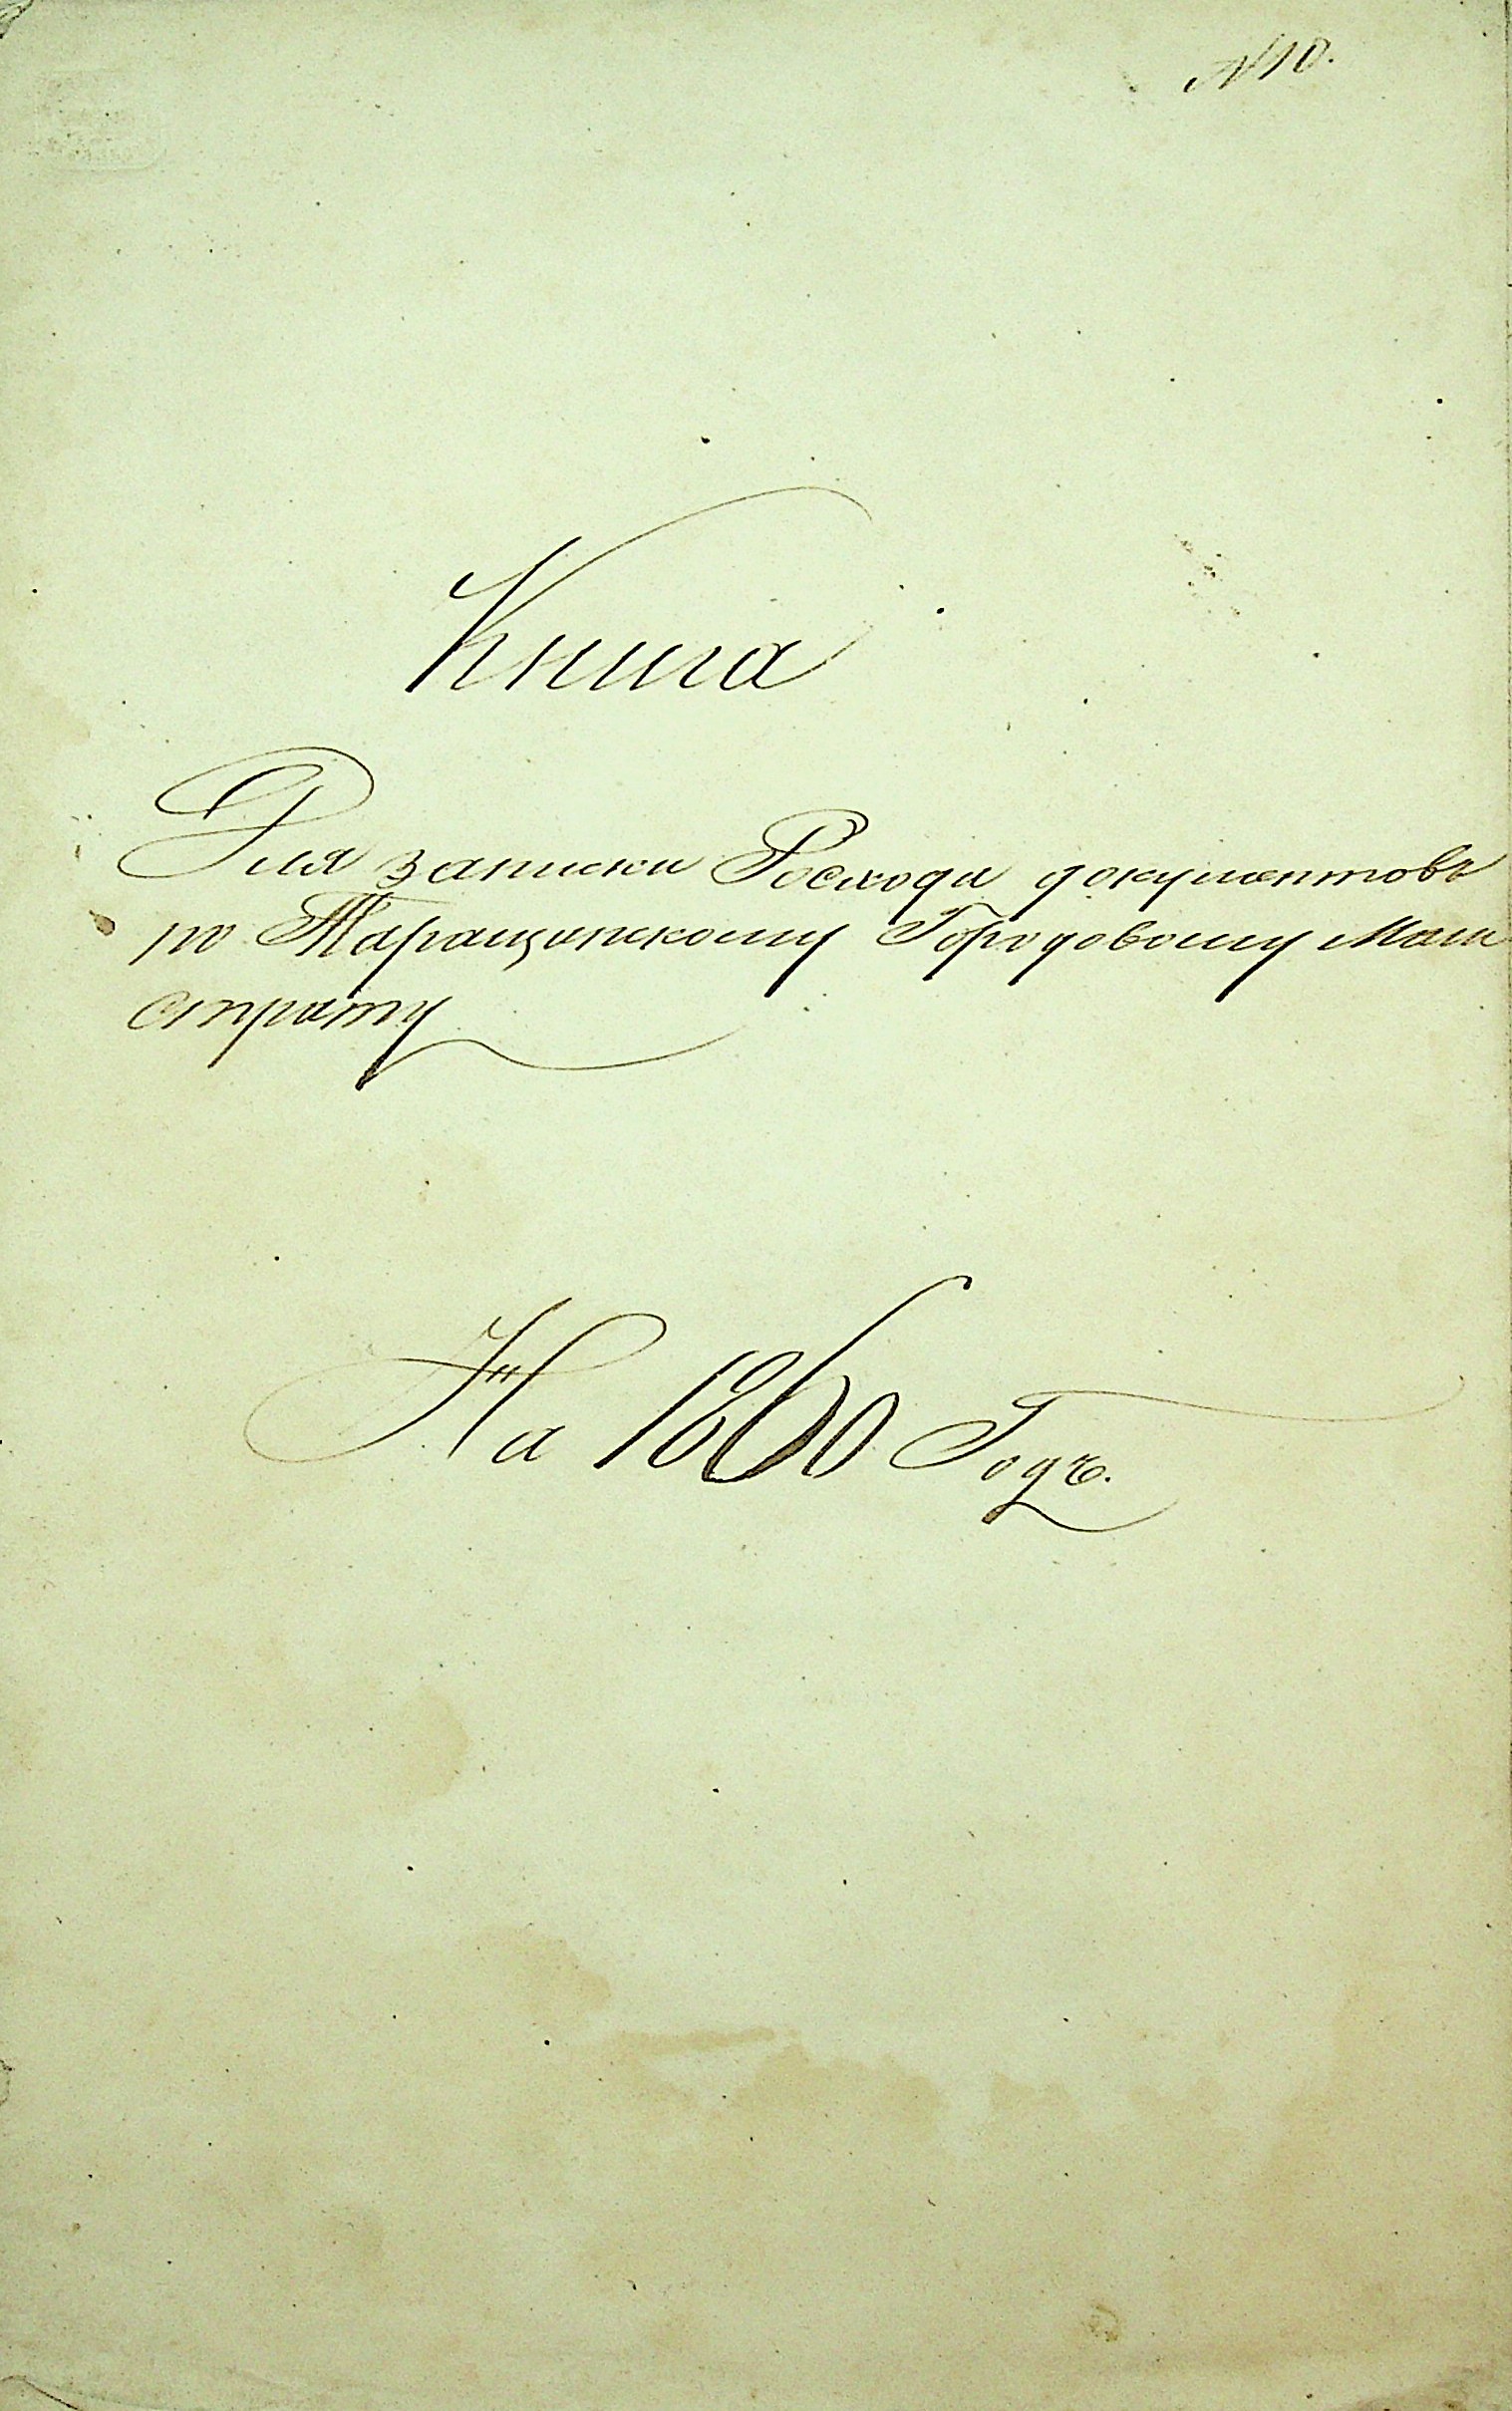 № 10.
Книга
Для записки Росхода документовъ
по Таращанскому Городовому Маги
страту
На 1860 Годъ.